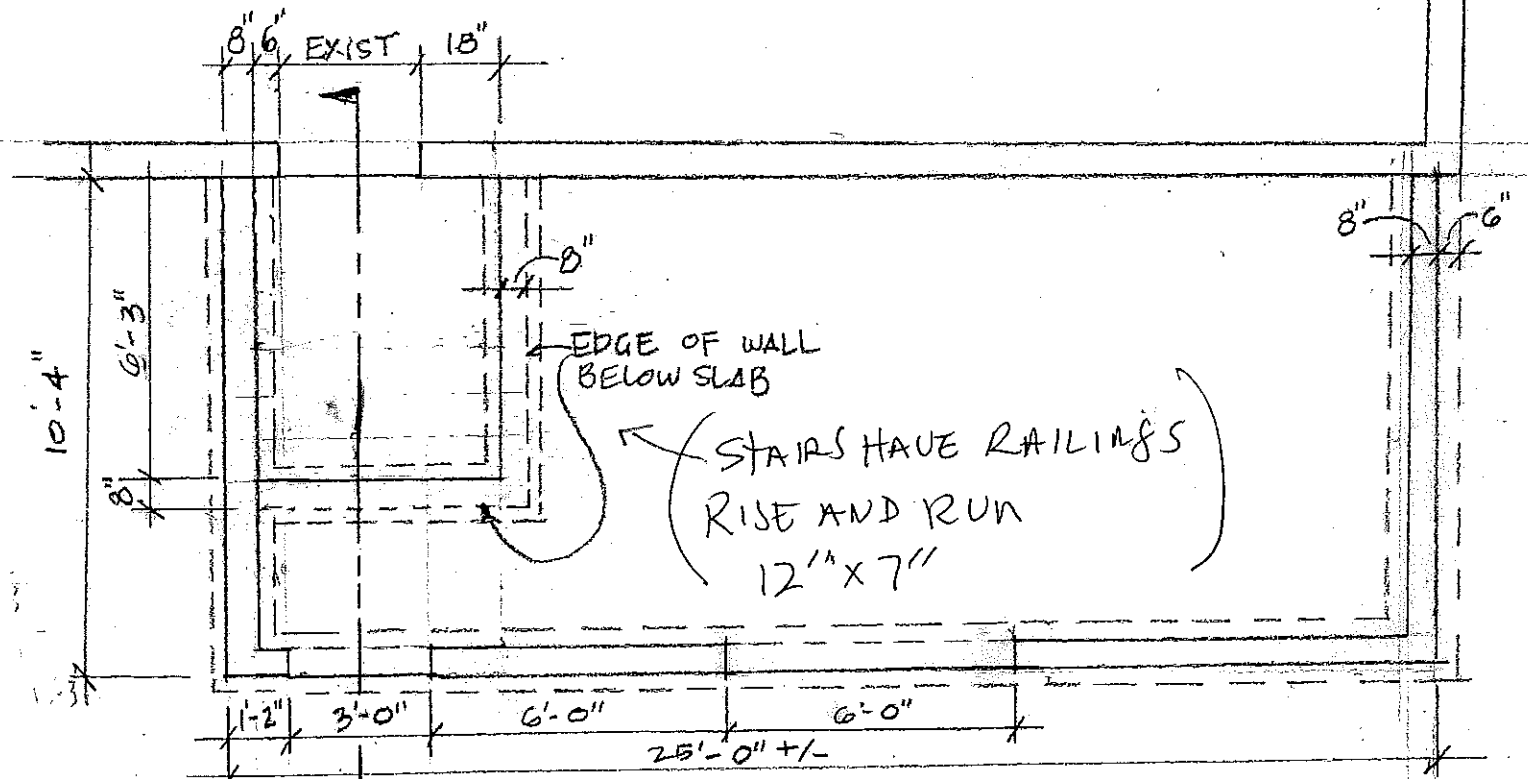 8" 6" EXIST 18"
8" 6"
8"
6'-3"
10'-4"
EDGE OF WALL
BELOW SLAB
STAIRS HAVE RAILINGS
RISE AND RUN
12" X 7"
8"
1'-2" 3'-0" 6'-0" 6'-0"
25'-0" +/-